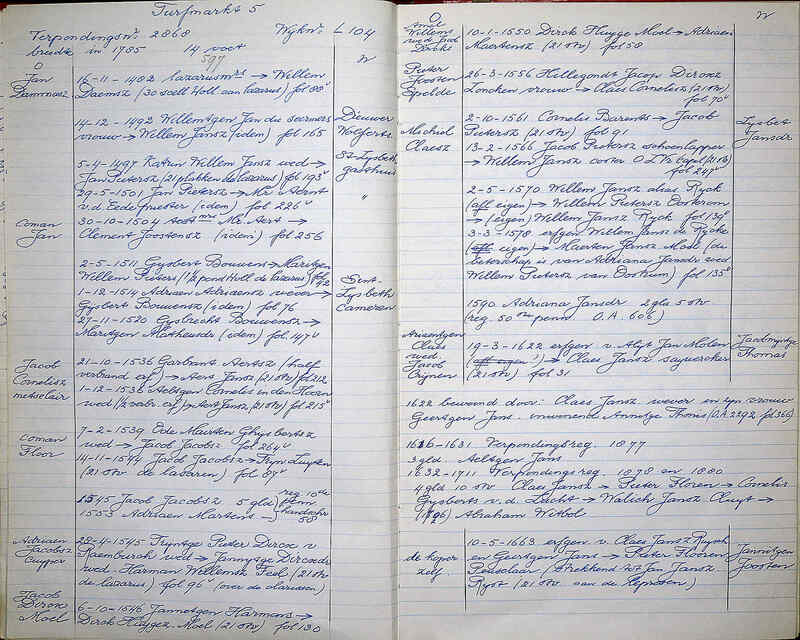 Turfmarkt 5
Verpondingsnr. 2868 Wijknr. L 104
breedte in 1785 14 voet
597
O W
Jan Dammasz
16-11-1482 Lazarusmrs → Willem
Daemsz (30 scell Holl aan lazarus) fol 88v
14-12-1492 Willemtgen Jan die seemers
vrouw → Willem Jansz (idem) fol 165
Dieuwer
Wolferts
5-4-1497 Katrin Willem Jansz wed →
Jan Pietersz (21 plakken de lazarus) fol 193v
St-Lysbeth
gasthuis
29-5-1501 Jan Pietersz → Mr. Aernt
v.d. Eede priester (idem) fol 226v
"
Coman
Jan
30-10-1504 Mr. Aert →
Clement Joostensz (idem) fol 256
2-5-1511 Gysbert Bouwensz → Maritgen
Willem Pieters (1/2 pond Holl de lazarus) fol 42
1-12-1514 Adriaen Adriaensz wever →
Gysbert Bouwensz (idem) fol 76
27-11-1520 Gysbrecht Bouwensz →
Maritgen Matheusdr (idem) fol. 147v
Sint-
Lysbeth
Cameren
Jacob
Cornelisz
metselair
21-10-1536 Garbrant Aertsz (half
verband erf) → Aert Jansz (21 str) fol 212
1-12-1536 Aeltgen Cornelis in den Hoorn
wed (1/2 vabr. erf) → Aert Jansz (21 str) fol 215v
Coman
Floor
7-2-1539 Ede Maerten Ghysbertsz
wed → Jacob Jacobsz fol 264v
14-11-1544 Jacob Jacobsz → Fijn Luyten
(21 str de lazarus) fol 87v
1545 Jacob Jacobsz 5 gld reg 10de
1553 Adriaen Martens penn
58v
Adriaen
Jacobsz
Cuyper
22-4-1545 Fijntge Pieter Dircxz v
Raenburch wed → Jannetge Dircxdr
wed. Harman Willemsz Feel (21 str
de lazarus) fol 96v (over de clarissen)
Jacob
Dircxz
Moel
6-10-1546 Jannetgen Harmans →
Dirck Huygez Moel (21 str) fol 130
O W
Willem
10-1-1550 Dirck Huyge Moel → Adriaen
Maertensz (21 str) fol 58
Pieter
Joosten
Spelde
26-3-1556 Hillegondt Jacop Dircxz
Loncken vrouw → Claes Cornelisz (21 str)
fol 70v
Michiel
Claesz
2-10-1561 Cornelis Barents → Jacob
Pietersz (21 str) fol 91
Lysbet
Jansdr
13-2-1566 Jacob Pietersz schoenlapper
→ Willem Jansz coster O.L.Vr. capel (21 str)
fol 247v
2-5-1570 Willem Jansz alias Ryck
(off eigen) → Willem Pietersz Oostrom
→ (eigen) Willem Jansz Ryck fol 139v
3-3-1578 erfgen Willem Jansz de Rycke
(off eigen) → Maerten Jansz Moel (de
beterschap is van Adriana Jansdr wed
Willem Pietersz van Oostrum) fol 135v
1590 Adriana Jansdr 2 gld 5 str
(reg. 50ste penn O.A. 606)
Annentgen
Claes
wed.
Jacob
Crijnen
19-3-1622 erfgen v. Alyt Jan Molen
(off eigen ?) → Claes Jansz saywercker
(21 str) fol 31
Jacobmyntge
Thomas
1622 bewoond door: Claes Jansz wever en syn vrouw
Geertgen Jans. inwonende Anntge Thonis (O.A. 2292 fol 366)
1626-1631 Verpondingsreg. 1877
3 gld. Aeltgen Jans
1632-1711 Verpondingsreg. 1878 en 1880
4 gld 10 str Claes Jansz → Pieter Floren → Cornelis
Gysberts v.d. Lucht → Walich Jansz Cluyt →
Abraham Witbol
de koper
zelf.
10-5-1663 erfgen v. Claes Jansz Ryck
en Geertgen Jans → Pieter Flooren
Peuselaar (strekkend tot Jan Jansz.
Ryst (21 str. aan de Leprosen)
Jannitgen
Joosten